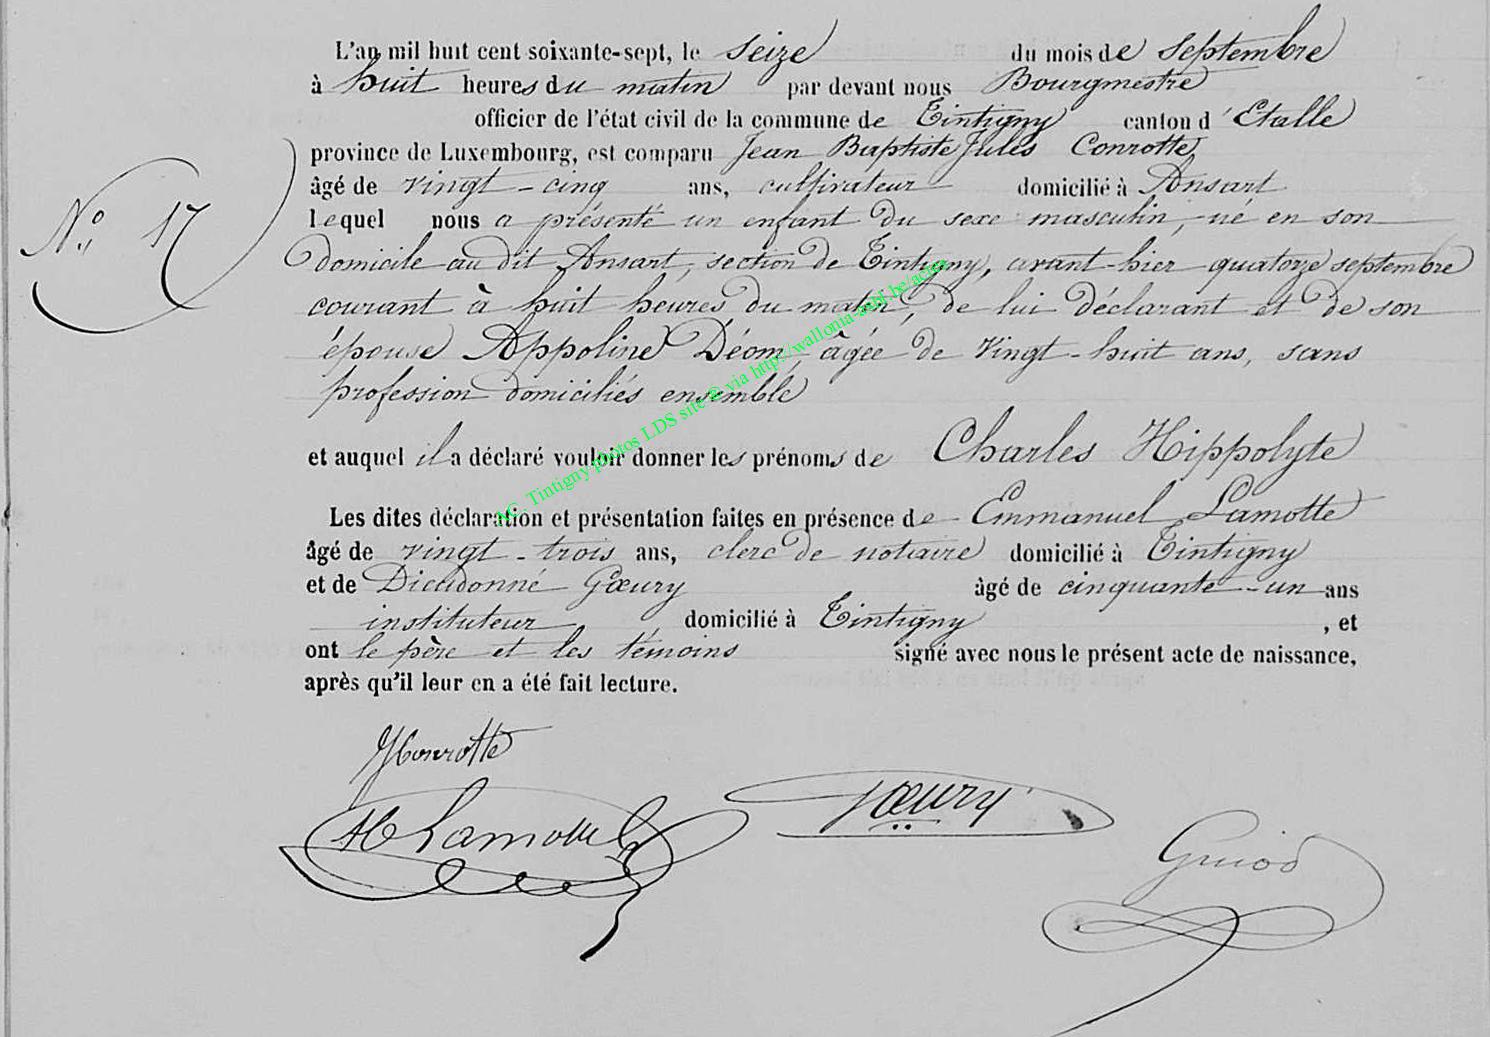 L'an mil huit cent soixante-sept, le seize du mois de septembre
à huit heures du matin par devant nous Bourgmestre
officier de l'état civil de la commune de Tintigny canton d'Etalle
province de Luxembourg, est comparu Jean Baptiste Jules Conrotte,
âgé de vingt-cinq ans, cultivateur domicilié à Ansart
lequel nous a présenté un enfant du sexe masculin, né en son
N° 17
domicile au dit Ansart, section de Tintigny, avant-hier quatorze septembre
courant à huit heures du matin, de lui déclarant et de son
épouse Appoline Déom, âgée de vingt-huit ans, sans
profession domiciliés ensemble
et auquel il a déclaré vouloir donner les prénoms de Charles Hippolyte
AC_Tintigny photos LDS site © via http://wallonia-asbl.be/actes
Les dites déclaration et présentation faites en présence de Emmanuel Lamotte
âgé de vingt-trois ans, clerc de notaire domicilié à Tintigny
et de Dieudonné Gœury âgé de cinquante-un ans
instituteur domicilié à Tintigny, et
ont le père et les témoins signé avec nous le présent acte de naissance,
après qu'il leur en a été fait lecture.
JConrotte
Lamotte
Gœury
Guiod